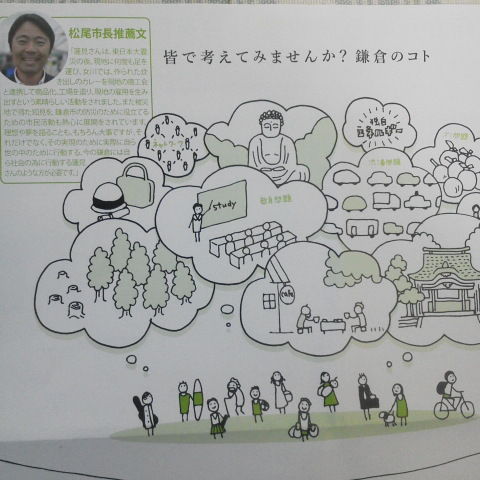 松尾市長推薦文
「蓮見さんは、東日本大震
災の後、現地に何度も足を
運び、女川では、作られた炊
き出しのカレーを現地の商工会
と連携して商品化、工場を造り、現地の雇用を生み
出すという素晴らしい活動をされました。また被災
地で得た知見を、鎌倉市の防災のために役立てる
ための市民活動も熱心に展開をされています。
理想や夢を語ることも、もちろん大事ですが、そ
れだけでなく、その実現のために実際に自ら
世の中のために行動する。今の鎌倉には自
ら社会の為に行動する蓮見
さんのような方が必要です。」
皆で考えてみませんか？鎌倉のコト
ネットワーク
独自
エネルギー
渋滞問題
study
教育問題
cafe